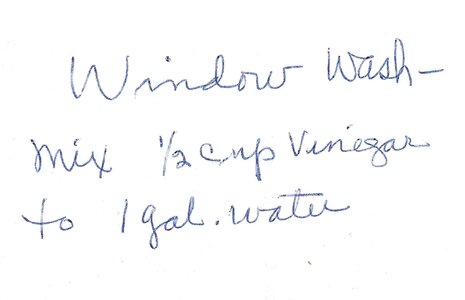 Window Wash-
Mix 1/2 cup Vinegar
to 1 gal. water